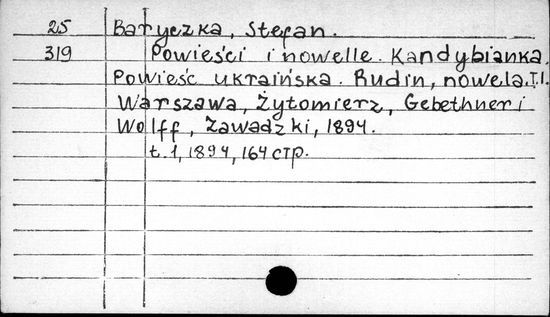 25 Batyczka, Stefan.
319 Powieści i nowelle. Kandybianka.
Powieść ukraińska. Rudin, nowela.T.I.
Warszawa, Żytomierz, Gebethner i
Wolff, Zawadzki, 1894.
t.1, 1894, 164 стр.